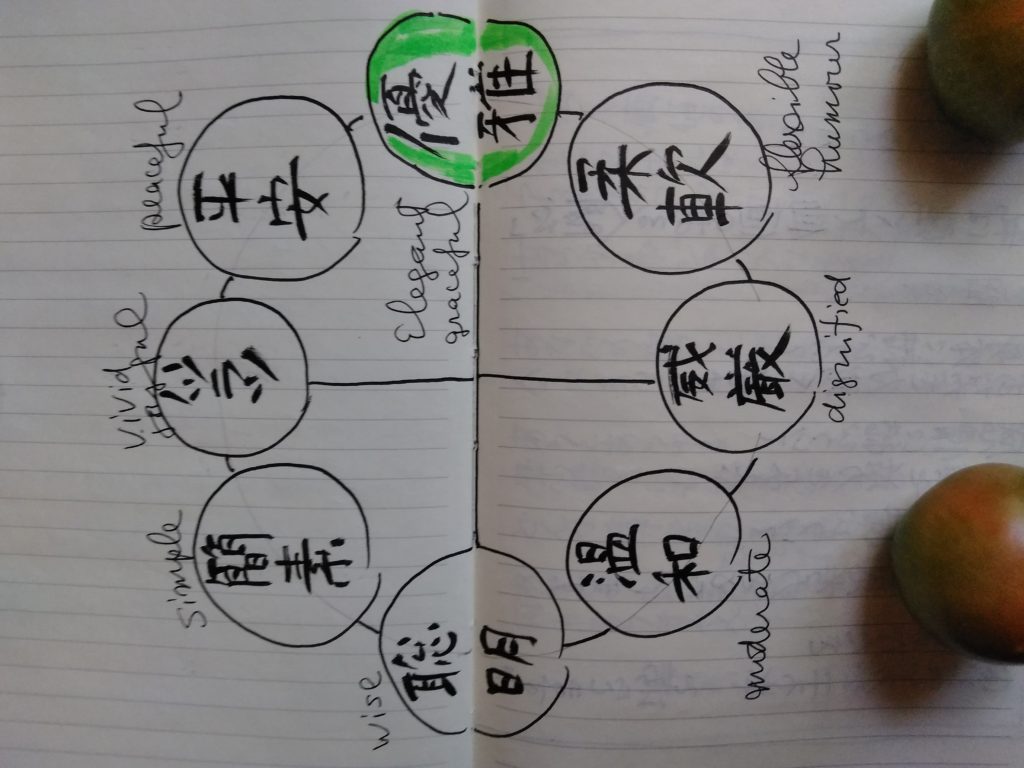 simple
簡素
vivid
peaceful
平安
wise
聡明
Elegant
graceful
優雅
温和
moderate
威厳
dignified
柔軟
flexible
humour